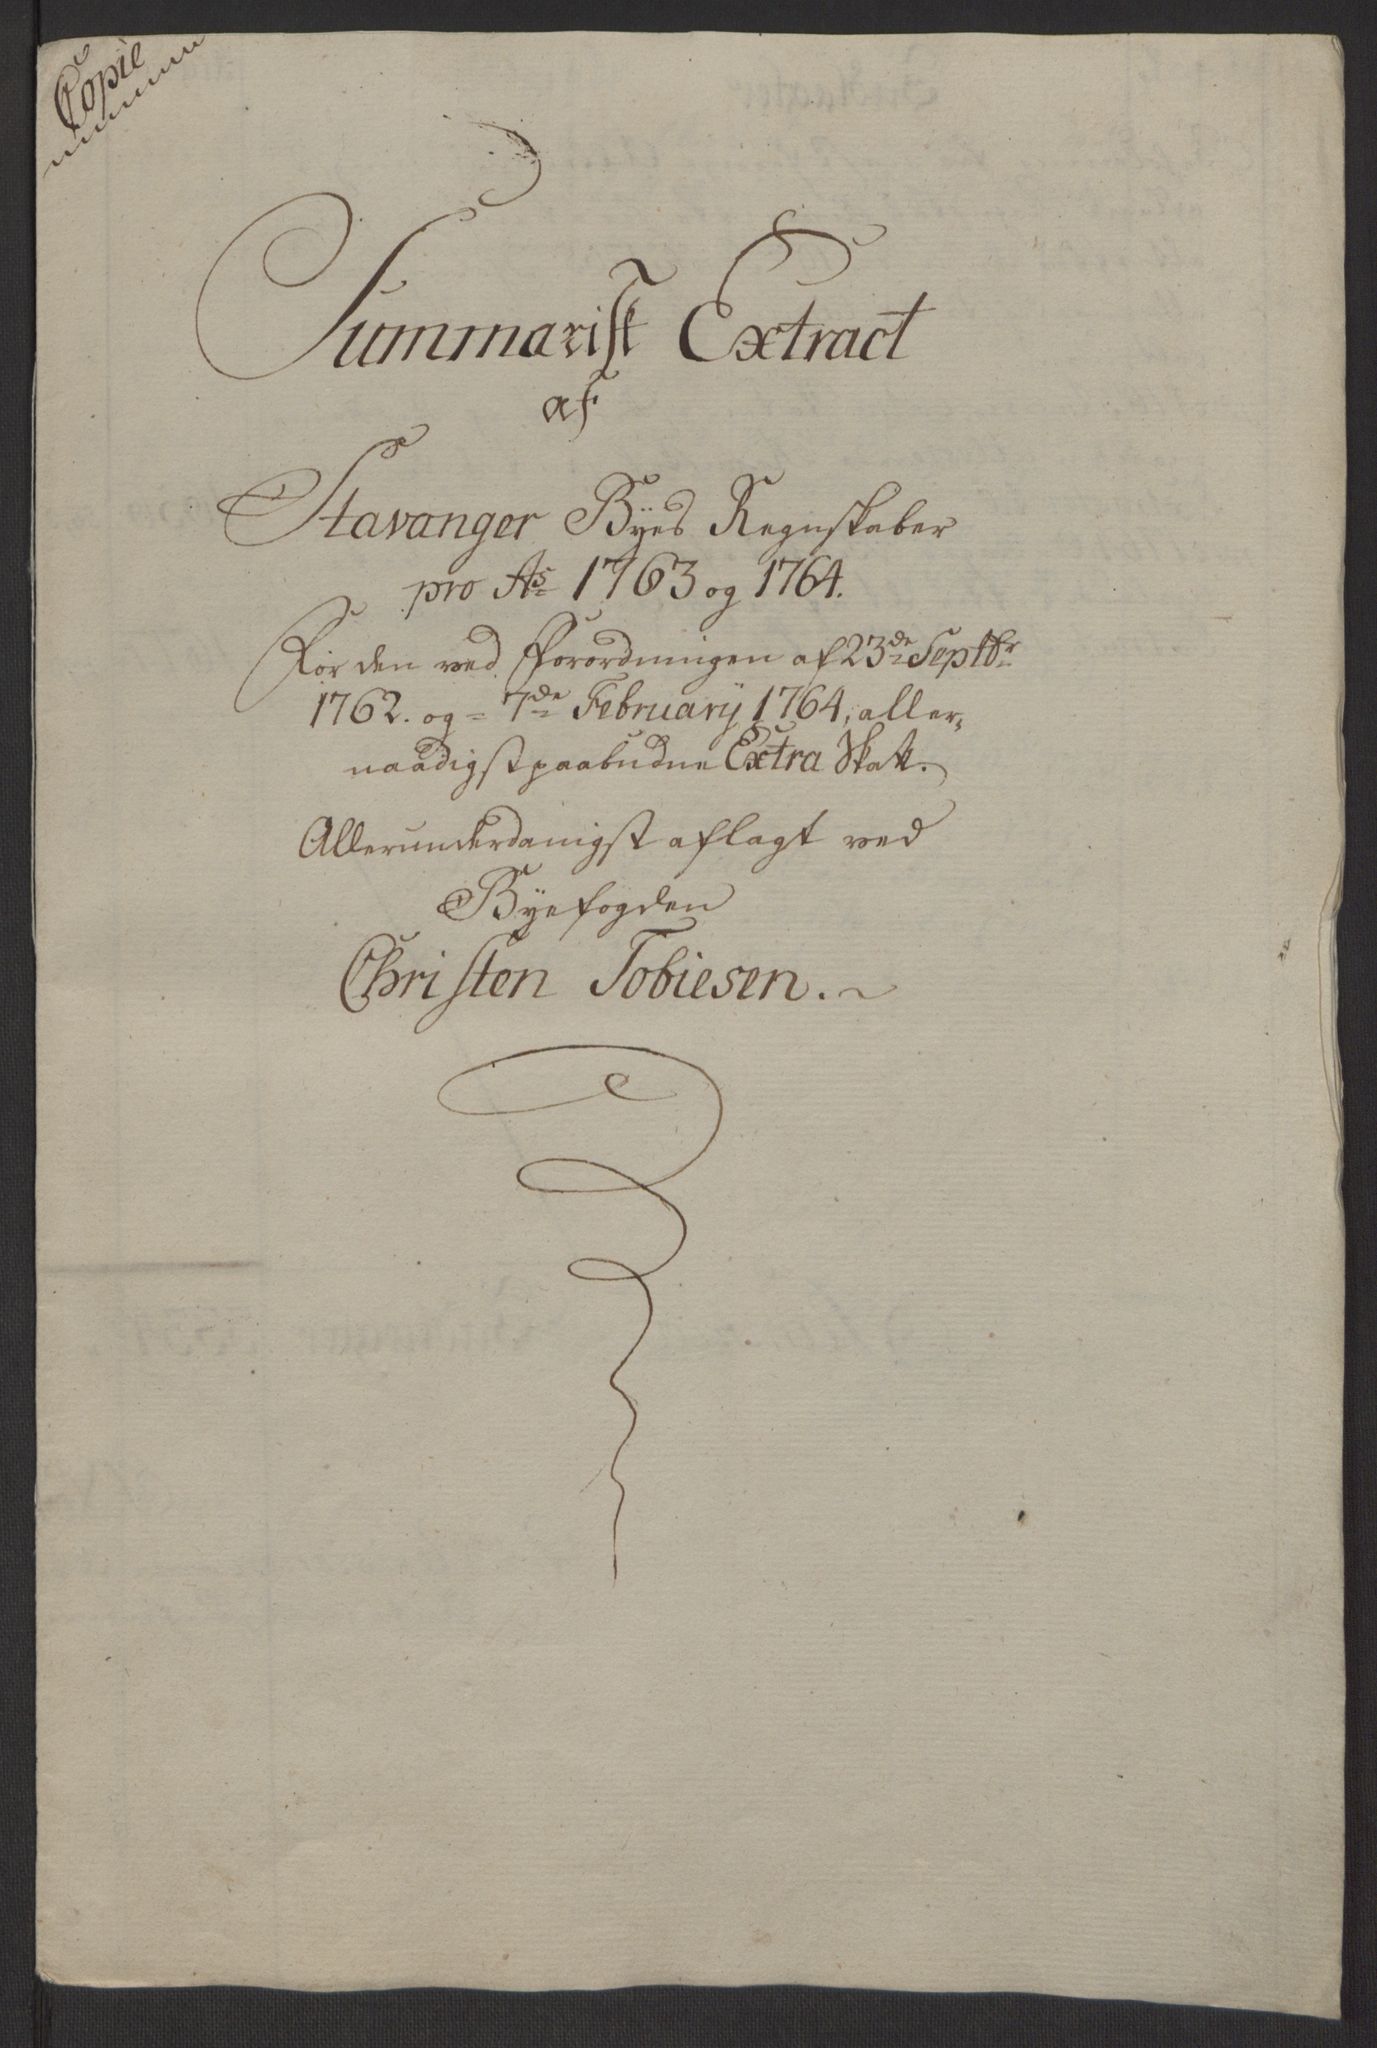 Copie
Summarisk Extract
af
Stavanger Byes Regnskaber
pro Aō 1763 og 1764.
For den ved Forordningen af 23de Septbr
1762. og = 7de February 1764, aller-
naadigst paabudne Extra Skatt.
Allerunderdanigst aflagt ved
Byefogden
Christen Tobiesen.